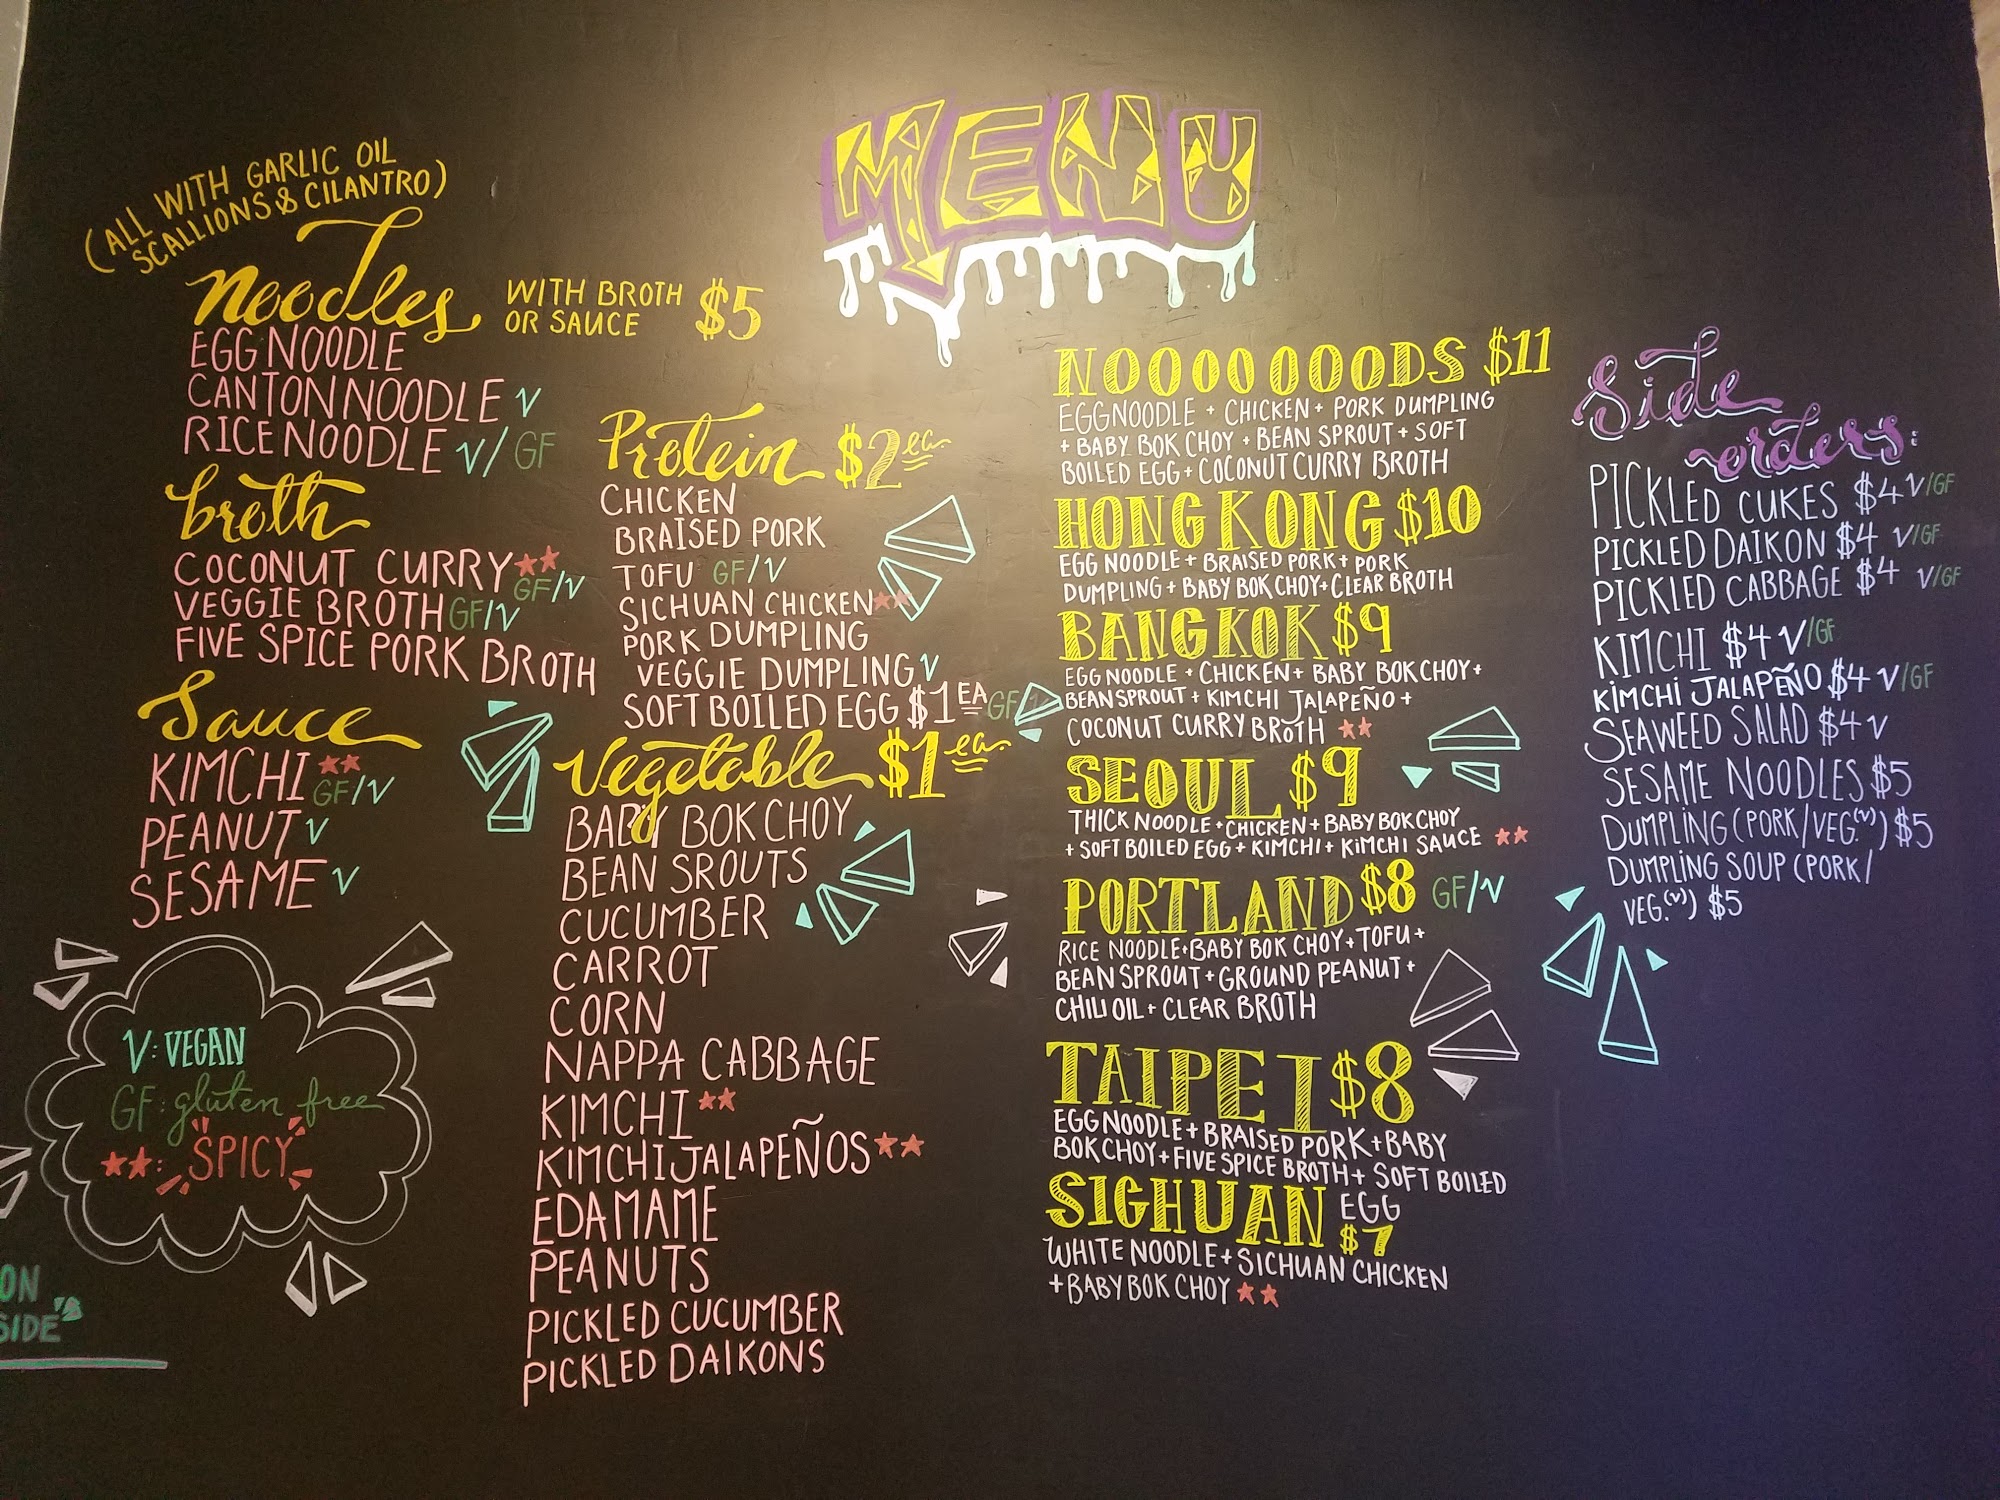 MENU
(ALL WITH GARLIC OIL
SCALLIONS & CILANTRO)
Noodles WITH BROTH
OR SAUCE $5
EGG NOODLE
CANTON NOODLE V
RICE NOODLE V/GF
broth
COCONUT CURRY ** GF/V
VEGGIE BROTH GF/V
FIVE SPICE PORK BROTH
Sauce
KIMCHI ** GF/V
PEANUT V
SESAME V
V: VEGAN
GF: gluten free
**: SPICY
ON
SIDE"
Protein $2 ea.
CHICKEN
BRAISED PORK
TOFU GF/V
SICHUAN CHICKEN **
PORK DUMPLING
VEGGIE DUMPLING V
SOFT BOILED EGG $1 EA GF
Vegetable $1 ea.
BABY BOK CHOY
BEAN SROUTS
CUCUMBER
CARROT
CORN
NAPPA CABBAGE
KIMCHI **
KIMCHI JALAPEÑOS **
EDAMAME
PEANUTS
PICKLED CUCUMBER
PICKLED DAIKONS
NOOOOOOODS $11
EGG NOODLE + CHICKEN + PORK DUMPLING
+ BABY BOK CHOY + BEAN SPROUT + SOFT
BOILED EGG + COCONUT CURRY BROTH
HONG KONG $10
EGG NOODLE + BRAISED PORK + PORK
DUMPLING + BABY BOK CHOY + CLEAR BROTH
BANGKOK $9
EGG NOODLE + CHICKEN + BABY BOK CHOY +
BEAN SPROUT + KIMCHI JALAPEÑO +
COCONUT CURRY BROTH **
SEOUL $9
THICK NOODLE + CHICKEN + BABY BOK CHOY
+ SOFT BOILED EGG + KIMCHI + KIMCHI SAUCE **
PORTLAND $8 GF/V
RICE NOODLE + BABY BOK CHOY + TOFU +
BEAN SPROUT + GROUND PEANUT +
CHILI OIL + CLEAR BROTH
TAIPEI $8
EGG NOODLE + BRAISED PORK + BABY
BOK CHOY + FIVE SPICE BROTH + SOFT BOILED
EGG
SICHUAN $7
WHITE NOODLE + SICHUAN CHICKEN
+ BABY BOK CHOY **
Side
orders:
PICKLED CUKES $4 V/GF
PICKLED DAIKON $4 V/GF
PICKLED CABBAGE $4 V/GF
KIMCHI $4 V/GF
KIMCHI JALAPEÑO $4 V/GF
SEAWEED SALAD $4 V
SESAME NOODLES $5
DUMPLING (PORK/VEG.(V)) $5
DUMPLING SOUP (PORK/
VEG.(V)) $5